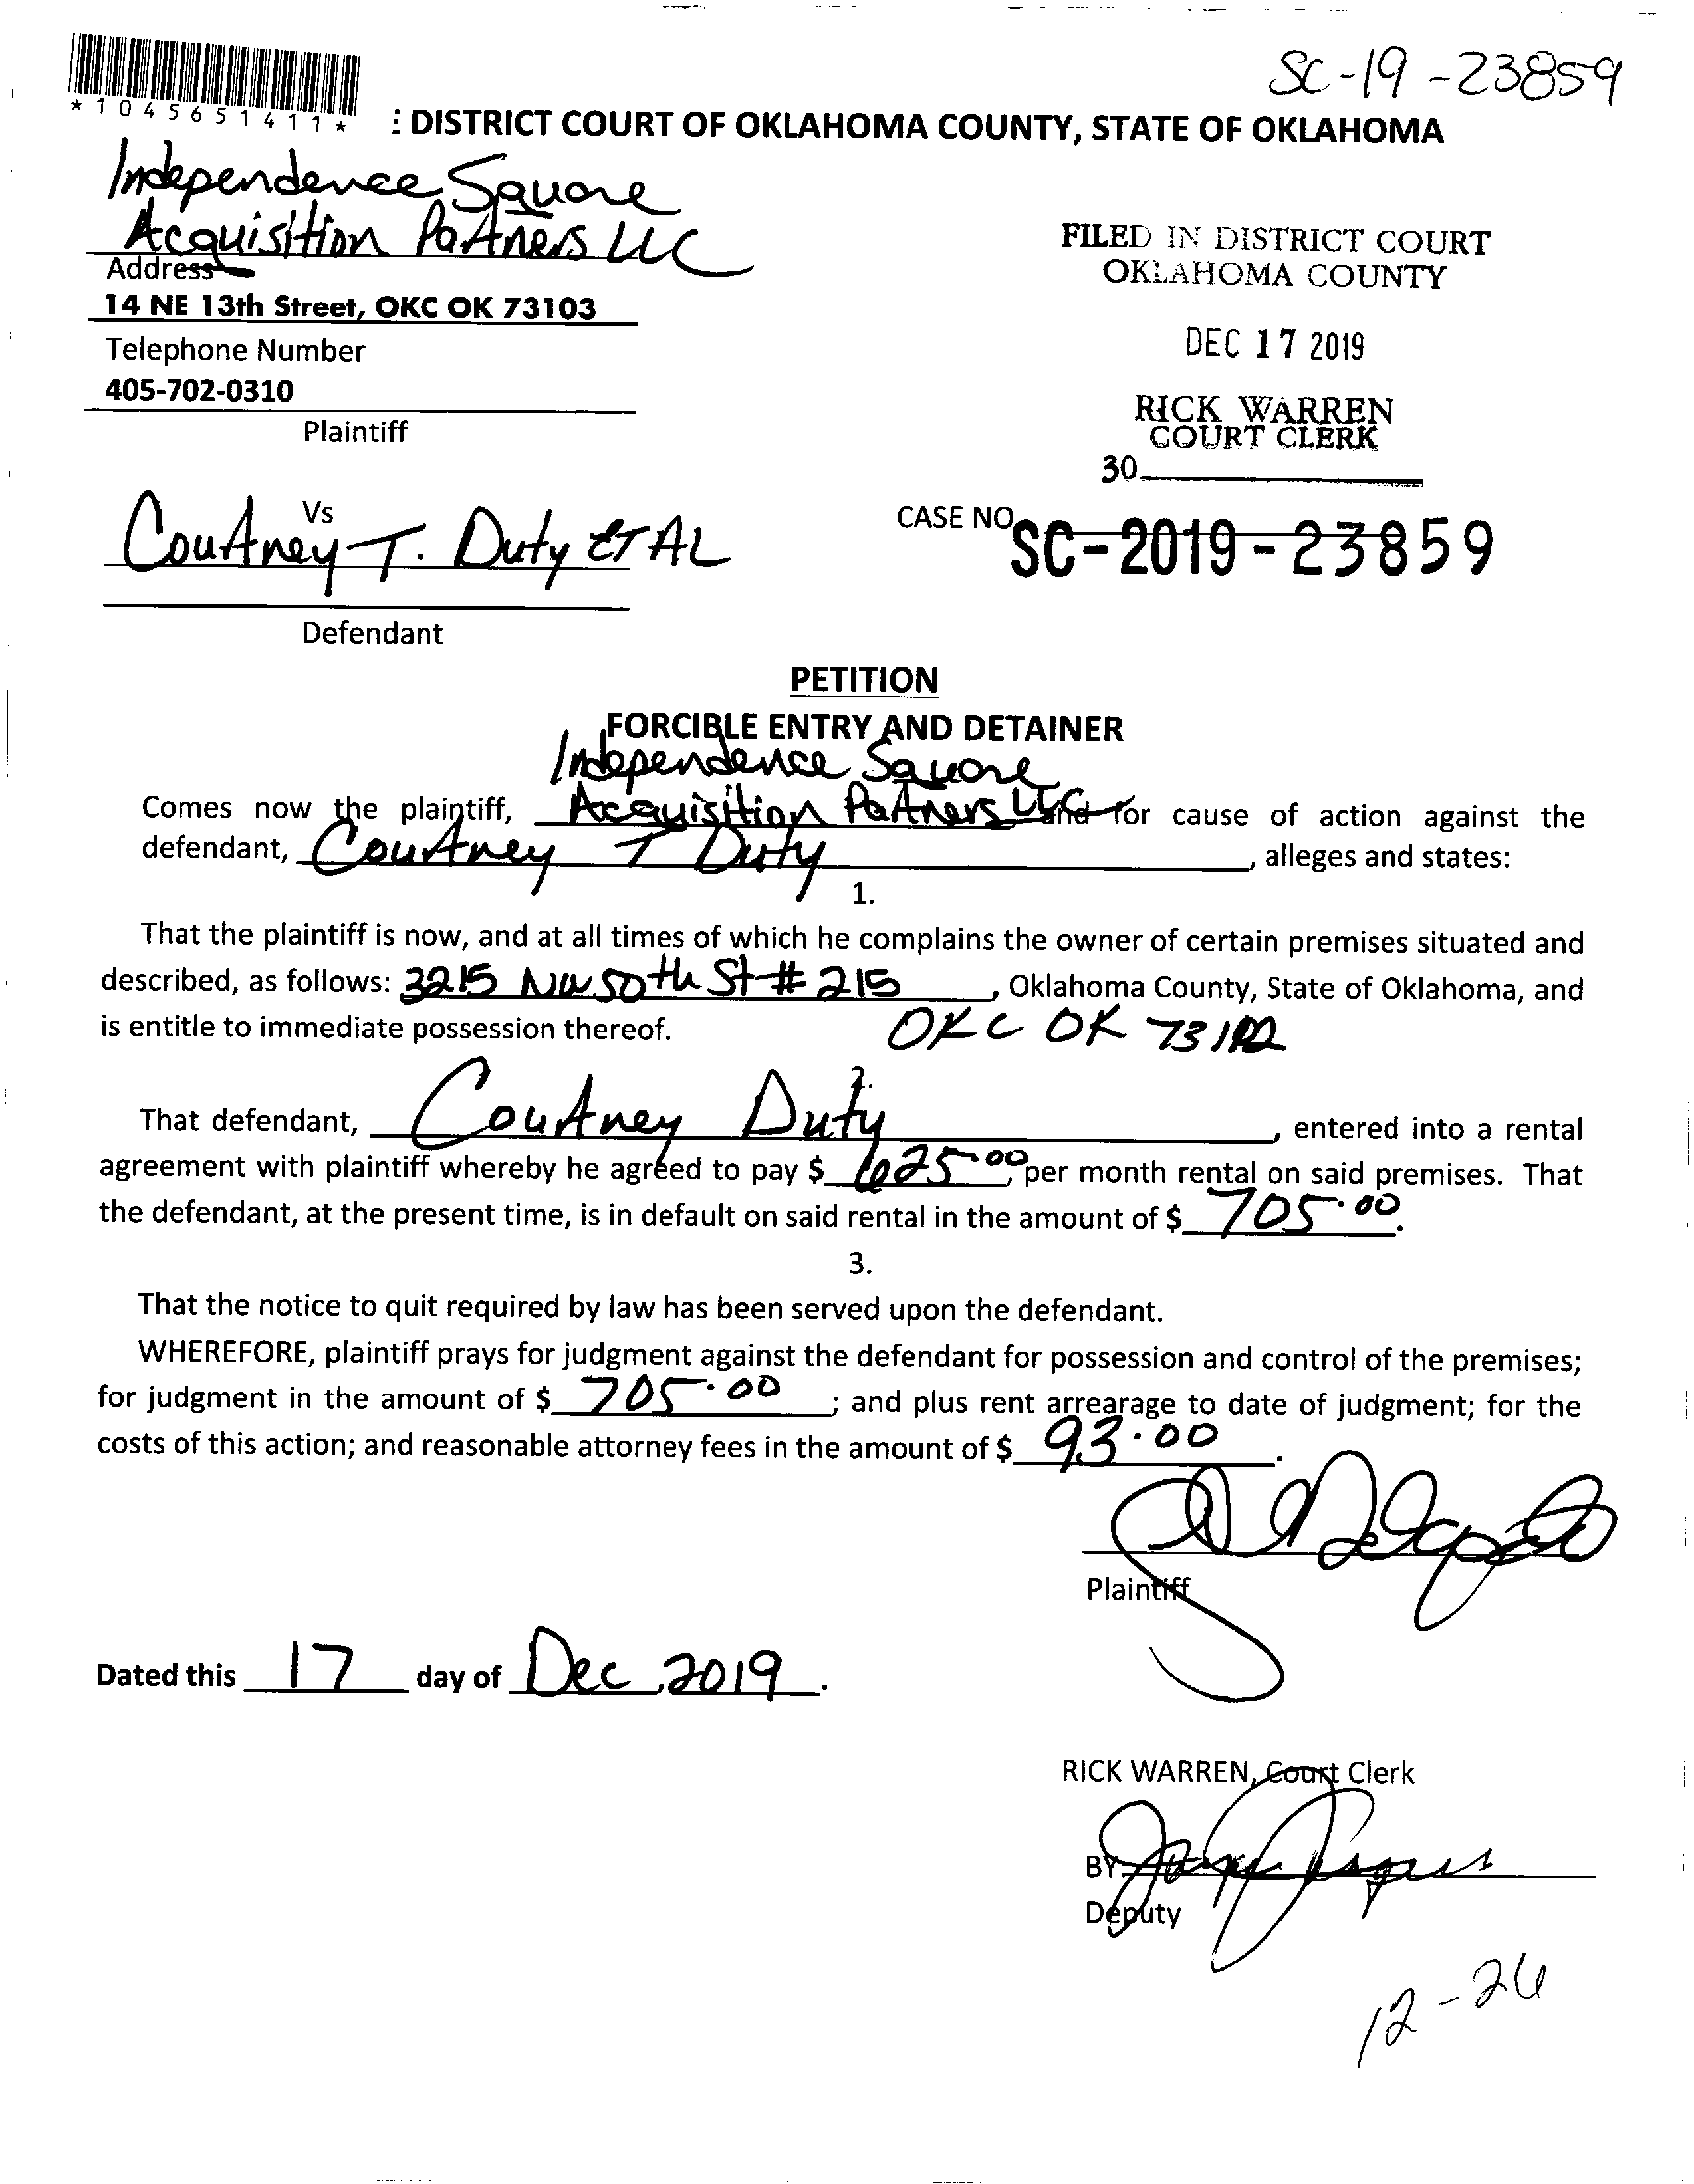 SC-19-23859
*1045651411*
: DISTRICT COURT OF OKLAHOMA COUNTY, STATE OF OKLAHOMA
Independence Square
Acquisition Partners LLC
Address
14 NE 13th Street, OKC OK 73103
Telephone Number
405-702-0310
Plaintiff
FILED IN DISTRICT COURT
OKLAHOMA COUNTY
DEC 17 2019
RICK WARREN
COURT CLERK
30
Vs
Courtney T. Duty ET AL
Defendant
CASE NO. SC-2019-23859
PETITION
FORCIBLE ENTRY AND DETAINER
Independence Square
Comes now the plaintiff, Acquisition Partners LLC and for cause of action against the
defendant, Courtney T Duty, alleges and states:
1.
That the plaintiff is now, and at all times of which he complains the owner of certain premises situated and
described, as follows: 3215 NW 50th St # 215, Oklahoma County, State of Oklahoma, and
is entitle to immediate possession thereof. OKC OK
2.
That defendant, Courtney Duty, entered into a rental
agreement with plaintiff whereby he agreed to pay $ 625.00 per month rental on said premises. That
the defendant, at the present time, is in default on said rental in the amount of $ 705.00.
3.
That the notice to quit required by law has been served upon the defendant.
WHEREFORE, plaintiff prays for judgment against the defendant for possession and control of the premises;
for judgment in the amount of $ 705.00; and plus rent arrearage to date of judgment; for the
costs of this action; and reasonable attorney fees in the amount of $ 93.00.
Plaintiff
Dated this 17 day of Dec, 2019.
RICK WARREN, Court Clerk
BY
Deputy
12-26